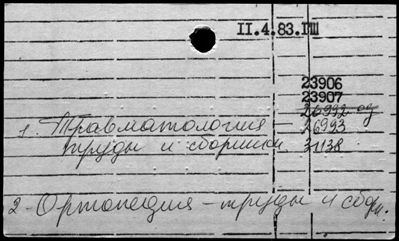 II.4.83.ГШ
23906
23907
26992 од
1. Травматология - 26993
труды и сборники 31138
2. Ортопедия - труды и сборн.